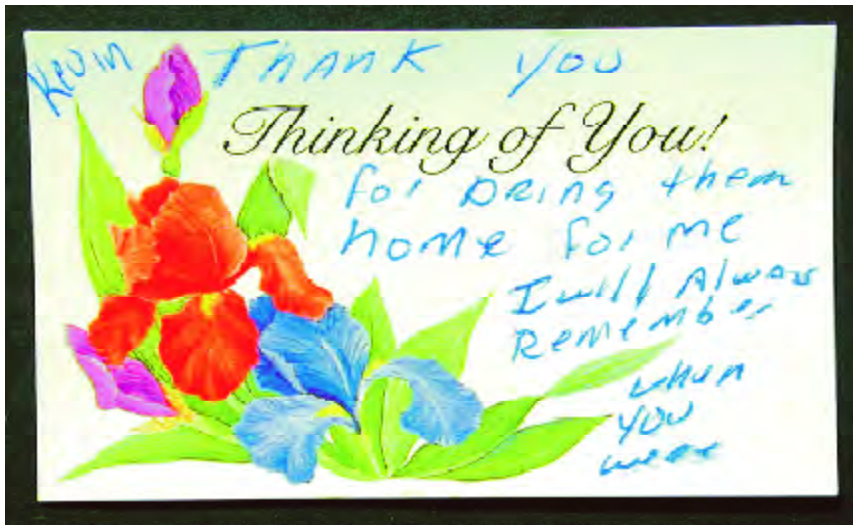 Kevin THANK you
Thinking of You!
for BRING them
home for me
I will Always
Remember
when
you
were